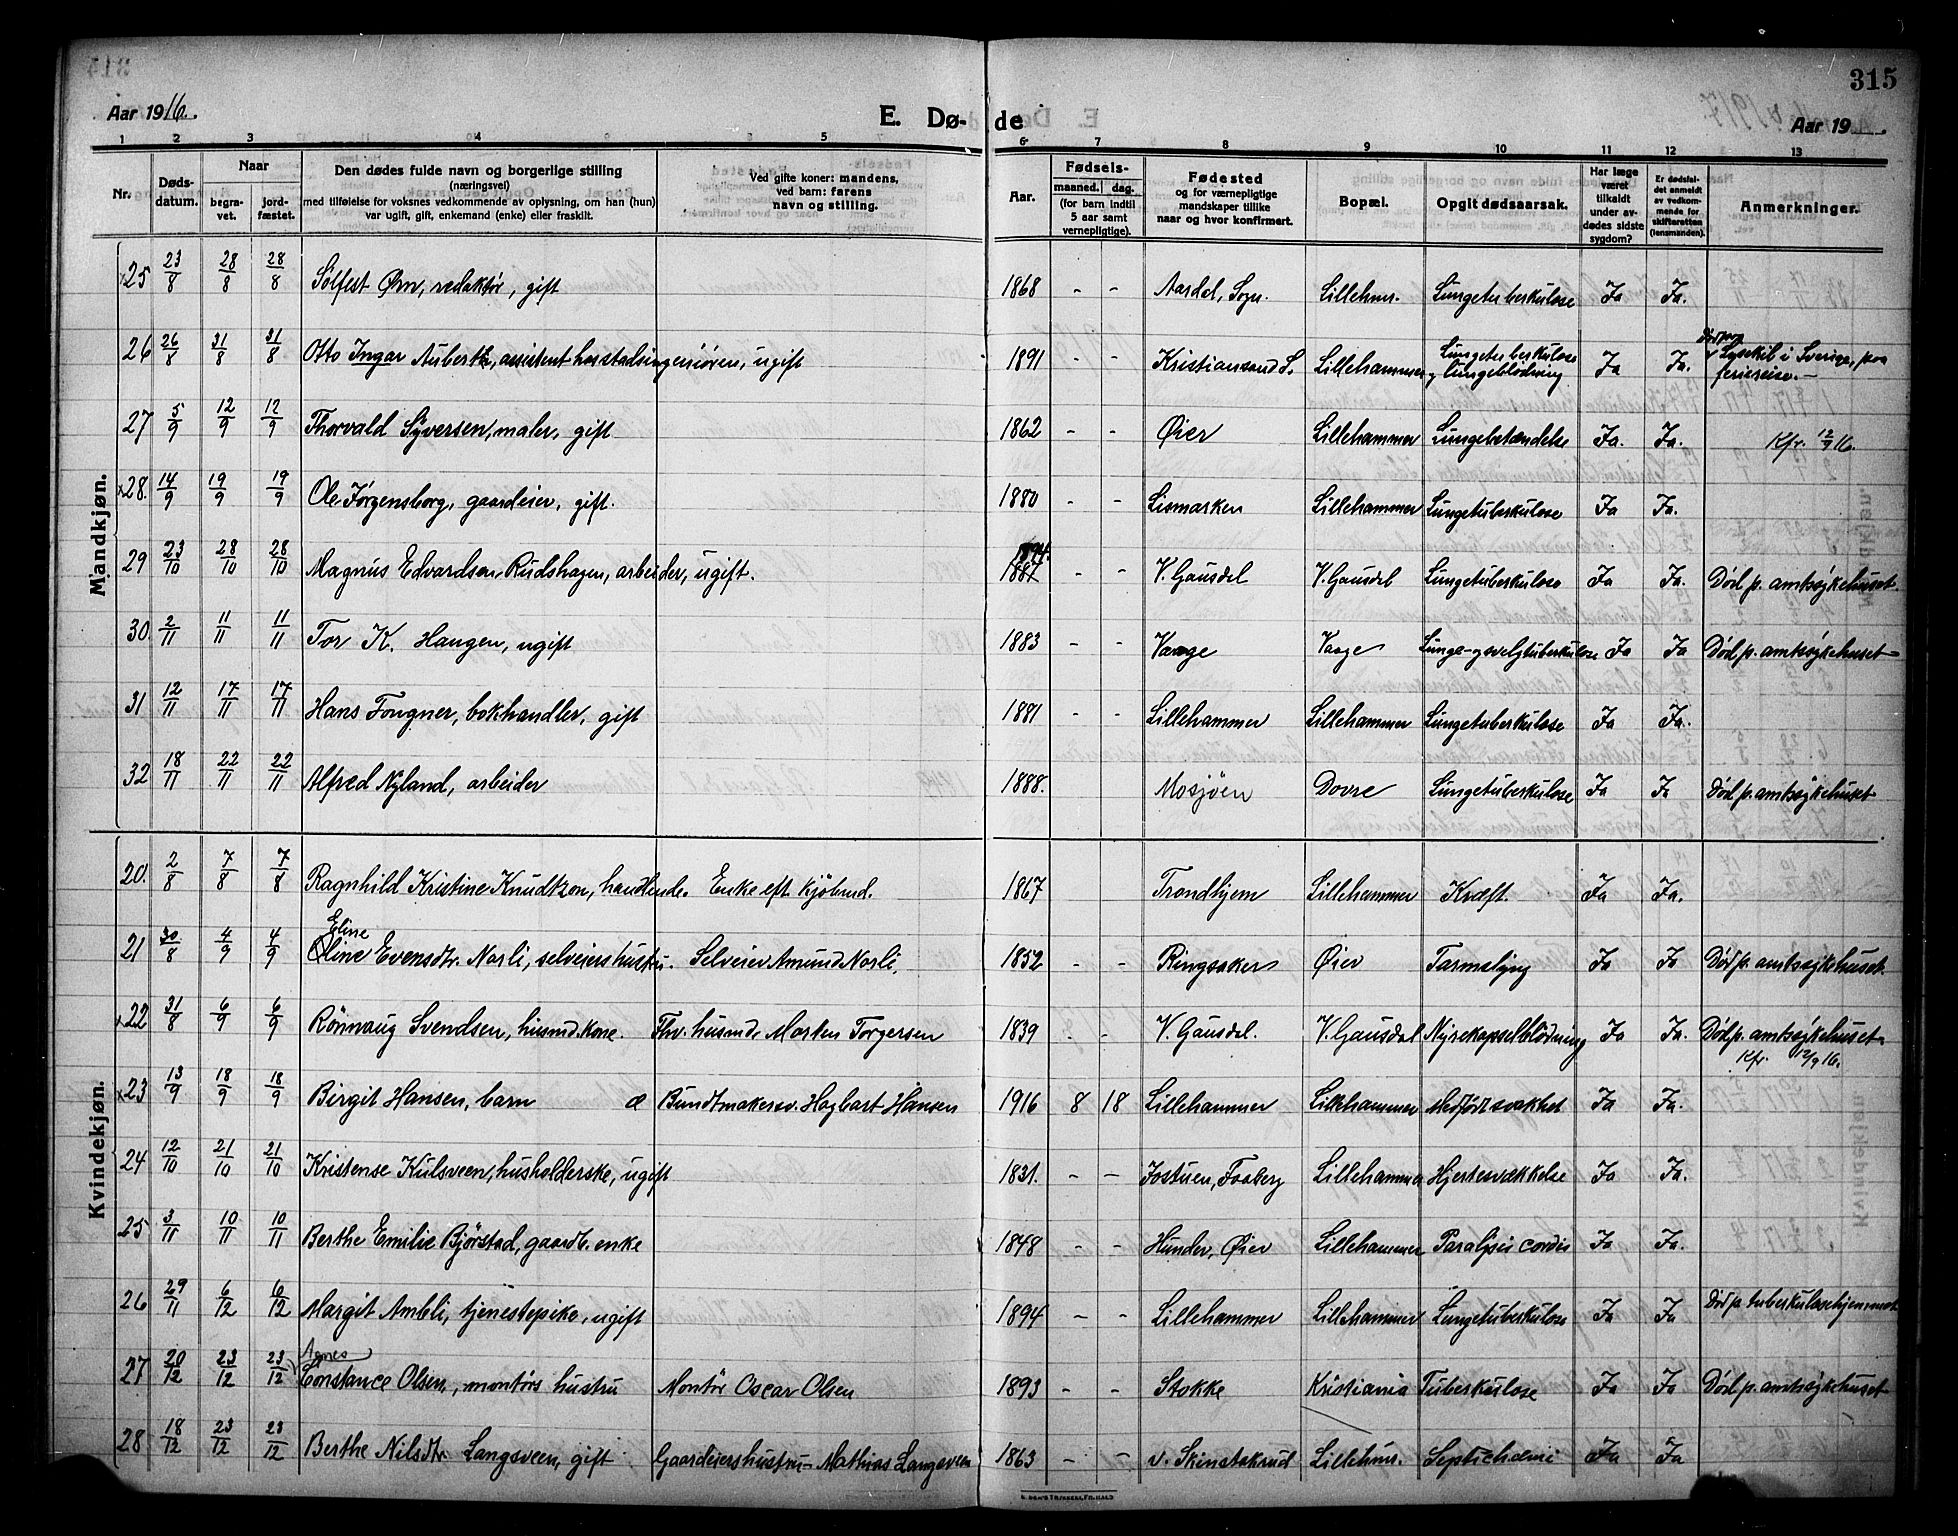 315
Aar 1916.
E. Dø- de
Aar 19
1 2 3 4 5 6 7 8 9 10 11 12 13
Nr. | Døds-datum. | Naar begra-vet. | jord-fæstet. | Den dødes fulde navn og borgerlige stilling (næringsvei) med tilføielse for voksnes vedkommende av oplysning, om han (hun) var ugift, gift, enkemand (enke) eller fraskilt. | Ved gifte koner: mandens, ved barn: farens navn og stilling. | Aar. | Fødsels- maaned. dag. (for barn indtil 5 aar samt vernepligtige). | Fødested og for værnepligtige mandskaper tillike naar og hvor konfirmert. | Bopæl. | Opgit dødsaarsak. | Har læge været tilkaldt under av-dødes sidste sygdom? | Er dødsfal-det anmeldt av vedkom-mende for skifteretten (lensmanden). | Anmerkninger.
Mandkjøn.
×25 23/8 28/8 28/8 Sølfest Ørn, redaktør, gift 1868 - - Aardal, Sogn. Lillehmr. Lungetuberkulose Ja Ja.
26 26/8 31/8 31/8 Otto Ingar Auberth, assistent hos stadsingeniøren, ugift 1891 - - Kristianssand S. Lillehammer Lungetuberkulose og lungeblödning Ja Ja. Död paa Lysekil i Sverige, paa feriereise. -
27 5/9 12/9 12/9 Thorvald Syversen, maler, gift 1862 - - Øier Lillehammer Lungebetændelse Ja. Ja. Kfr. 12/9 16.
×28. 14/9 19/9 19/9 Ole Jørgensborg, gaardeier, gift. 1880 - - Lismarken Lillehammer Lungetuberkulose Ja Ja.
29 23/10 28/10 28/10 Magnus Edvardsen Rudshagen, arbeider, ugift. 1894. 1887 - - V. Gausdal V. Gausdal Lungetuberkulose Ja Ja. Död p. amtssykehuset.
30. 2/11 11/11 11/11 Tor K. Haugen, ugift 1883 - - Vaage Vaage Lunge- og svelgtuberkulose Ja Ja Död p. amtssykehuset
31 12/11 17/11 17/11 Hans Fougner, bokhandler, gift 1881 - - Lillehammer Lillehammer Lungetuberkulose Ja Ja.
32 18/11 22/11 22/11 Alfred Nyland, arbeider 1888. Mosjøen Dovre Lungetuberkulose Ja Ja Död p. amtssykehuset
Kvindekjøn.
20. 2/8 7/8 7/8 Ragnhild Kristine Knudtzon, handlende. Enke eft. kjøbmd. 1867 Trondhjem Lillehammer Kræft. Ja Ja.
21 30/8 4/9 4/9 Eline Oline Evensdtr. Norli, selveiershustru. Selveier Amund Norli, 1852 - - Ringsaker Øier Tarmslyng Ja Ja Död p. amtssykehuset.
×22 31/8 6/9 6/9 Rönnaug Svendsen, husmd. kone. Fhv. husmd. Morten Torgersen 1839 - - V. Gausdal. V. Gausdal Nyrekapselblödning Ja Ja. Död p. amtssykehuset Kfr. 12/9 16.
×23 13/9 18/9 18/9 Birgit Hansen, barn æ Bundtmakersv. Hagbart Hansen 1916 8 18 Lillehammer Lillehammer Medfödt svakhet Ja Ja.
24 12/10 21/10 21/10 Kristense Kulsveen, husholderske, ugift 1831. - - Jostuen, Faaberg Lillehammer Hjertesvækkelse Ja Ja.
25 3/11 10/11 10/11 Berthe Emilie Bjørstad, gaardb. enke 1848 - - Hunder, Øier Lillehammer Paralysis cordis Ja Ja.
26 29/11 6/12 6/12 Margit Ambli, tjenestepike, ugift 1894 - - Lillehammer Lillehammer Lungetuberkulose Ja Ja Död p. tuberkulosehjemmet.
27 20/12 23/12 23/12 Agnes Constance Olsen, montørs hustru Montør Oscar Olsen 1893 - - Stokke Kristiania Tuberkulose Ja Ja Död p. amtssykehuset
28 18/12 23/12 23/12 Berthe Nilsdtr Langsveen, gift Gaardeiershustru - Mathias Langsveen 1863 - - v. Skinstakrud Lillehmr. Septichæmi Ja Ja